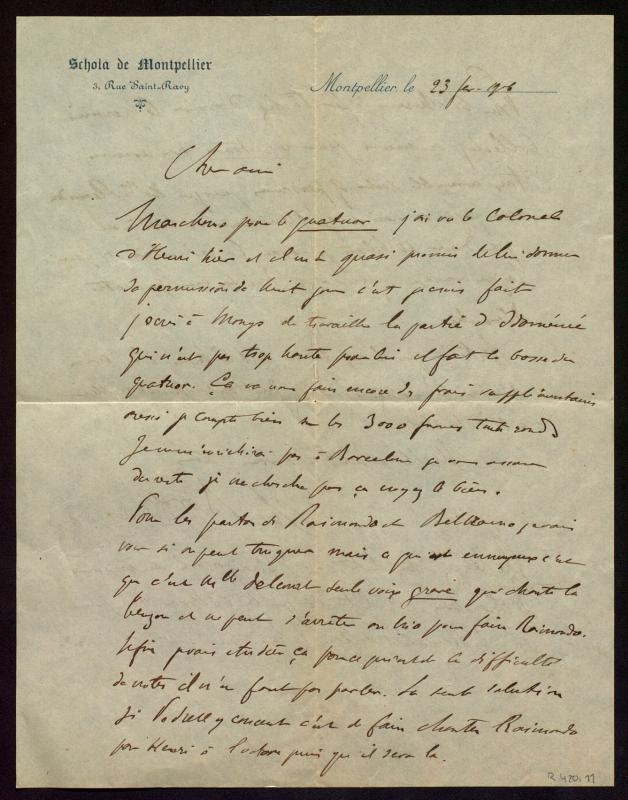 Schola de Montpellier
3, Rue Saint-Ravy
Montpellier, le 23 fev. 1906
Cher ami
Marchons pour le quatuor j'ai vu le Colonel
d'Henri hier et il m'a quasi promis de lui donner
sa permission de huit jours c'est jamais fait
j'écris à de travailler la partie d
qui n'est pas trop haute pour lui il fait la basse du
quatuor. Ça va nous faire encore des frais supplémentaires
aussi je compte bien sur les 3000 francs tout ronds
Je ne m'enrichirai pas à Barcelone je vous assure
du reste je ne cherche pas ça croyez le bien.
Pour les parties de Raimondo et Bellramo je vais
voir si on peut truquer mais ce qui est ennuyeux c'est
que c'est Mlle seule voix grave qui chante la
et ne peut s'arrêter au trio pour faire Raimondo.
Enfin je vais étudier ça parce que de la difficulté
de notes il n'en faut pas parler. La seule solution
si Pedrell y consent c'est de faire chanter Raimondo
par Henri à l'octave puis qu'il sera là.
R. 420. 11